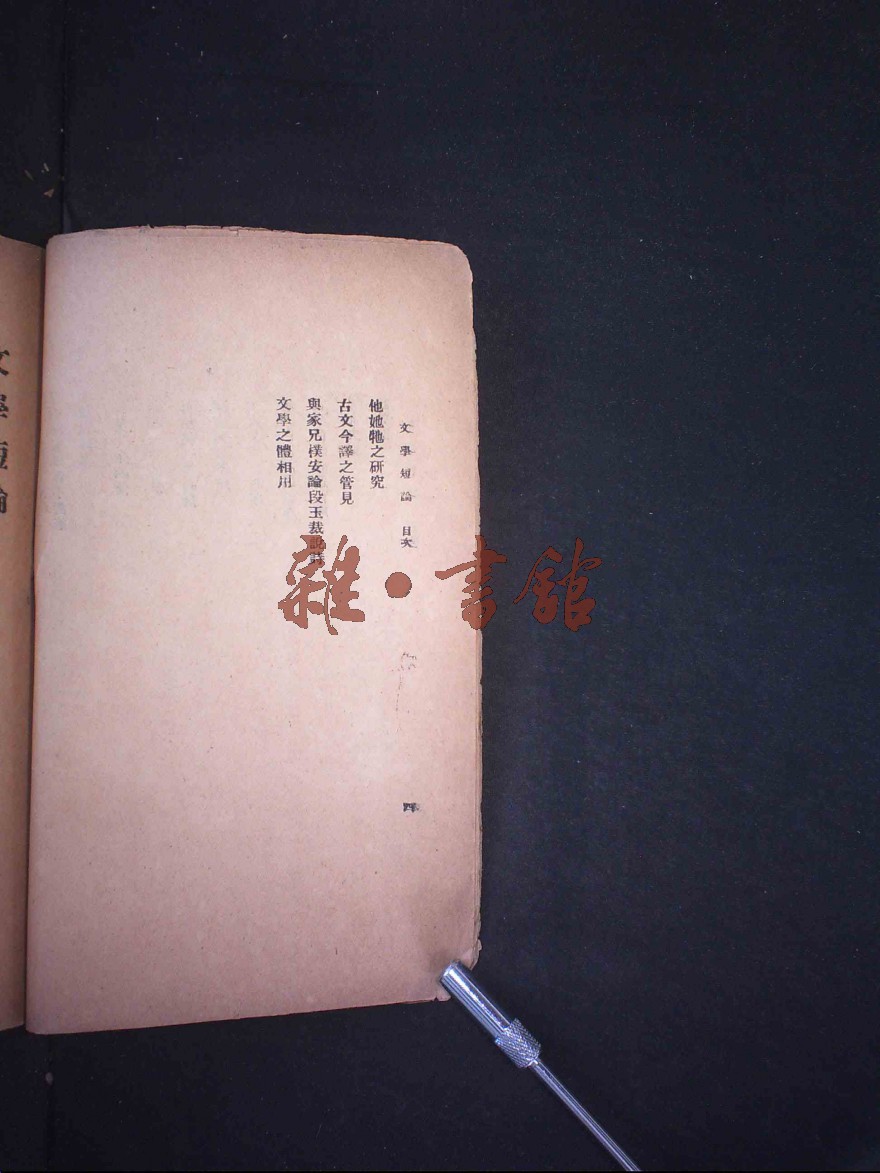 文學短論 目次
四
他她牠之研究
古文今譯之管見
與家兄樸安論段玉裁說詩
文學之體相用
文學短論
雜·書館